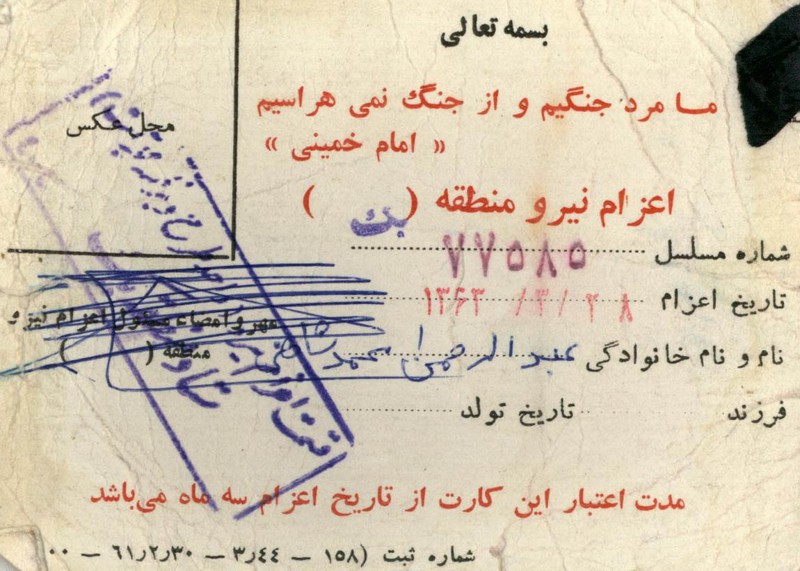 بسمه تعالی
ما مرد جنگیم و از جنگ نمی هراسیم
« امام خمینی »
محل عکس
اعزام نیرو منطقه (یک)
شماره مسلسل ۷۷۵۸۵
تاریخ اعزام ۱۳۶۳/۳/۲۸
نام و نام خانوادگی عبدالرحمن محمد
مهر و امضاء مسئول اعزام نیرو
منطقه ( )
فرزند تاریخ تولد
مدت اعتبار این کارت از تاریخ اعزام سه ماه می‌باشد
شماره ثبت (۱۵۸ – ۳٫۴۴ – ۶۱٫۲٫۳۰ – ۰۰